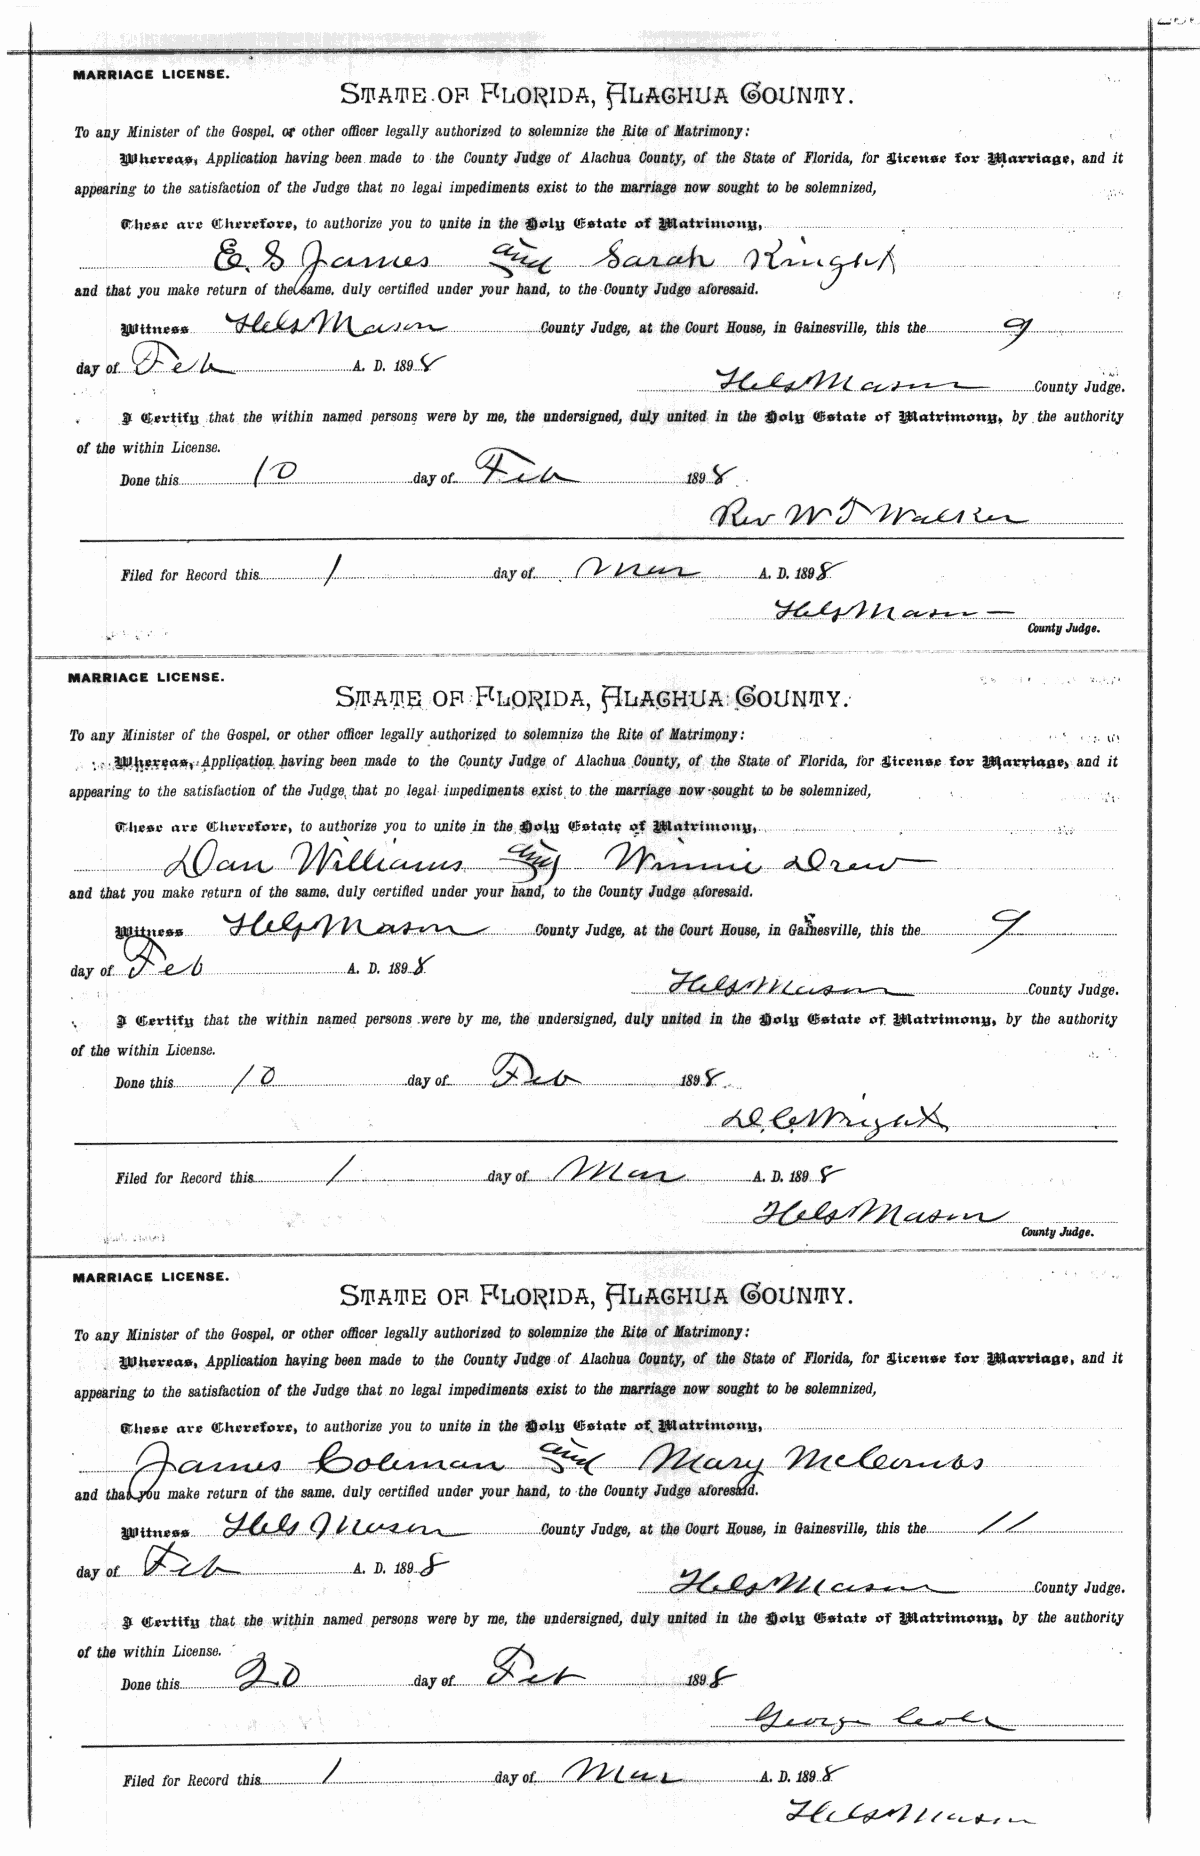 MARRIAGE LICENSE.
STATE OF FLORIDA, ALACHUA COUNTY.
To any Minister of the Gospel, or other officer legally authorized to solemnize the Rite of Matrimony:
Whereas, Application having been made to the County Judge of Alachua County, of the State of Florida, for License for Marriage, and it
appearing to the satisfaction of the Judge that no legal impediments exist to the marriage now sought to be solemnized,
These are Therefore, to authorize you to unite in the Holy Estate of Matrimony,
E. S James and Sarah Knight
and that you make return of the same, duly certified under your hand, to the County Judge aforesaid.
Witness Mason County Judge, at the Court House, in Gainesville, this the 9
day of Feb A. D. 1898
Mason County Judge.
I Certify that the within named persons were by me, the undersigned, duly united in the Holy Estate of Matrimony, by the authority
of the within License.
Done this 10 day of Feb 1898
Rev W T Walker
Filed for Record this 1 day of Mar A. D. 1898
Mason
County Judge.
MARRIAGE LICENSE.
STATE OF FLORIDA, ALACHUA COUNTY.
To any Minister of the Gospel, or other officer legally authorized to solemnize the Rite of Matrimony:
Whereas, Application having been made to the County Judge of Alachua County, of the State of Florida, for License for Marriage, and it
appearing to the satisfaction of the Judge that no legal impediments exist to the marriage now sought to be solemnized,
These are Therefore, to authorize you to unite in the Holy Estate of Matrimony,
Dan Williams and Winnie Drew
and that you make return of the same, duly certified under your hand, to the County Judge aforesaid.
Witness Mason County Judge, at the Court House, in Gainesville, this the 9
day of Feb A. D. 1898
Mason County Judge.
I Certify that the within named persons were by me, the undersigned, duly united in the Holy Estate of Matrimony, by the authority
of the within License.
Done this 10 day of Feb 1898
D. C. Wright
Filed for Record this 1 day of Mar A. D. 1898
Mason
County Judge.
MARRIAGE LICENSE.
STATE OF FLORIDA, ALACHUA COUNTY.
To any Minister of the Gospel, or other officer legally authorized to solemnize the Rite of Matrimony:
Whereas, Application having been made to the County Judge of Alachua County, of the State of Florida, for License for Marriage, and it
appearing to the satisfaction of the Judge that no legal impediments exist to the marriage now sought to be solemnized,
These are Therefore, to authorize you to unite in the Holy Estate of Matrimony,
James Coleman and Mary McCombs
and that you make return of the same, duly certified under your hand, to the County Judge aforesaid.
Witness Mason County Judge, at the Court House, in Gainesville, this the 11
day of Feb A. D. 1898
Mason County Judge.
I Certify that the within named persons were by me, the undersigned, duly united in the Holy Estate of Matrimony, by the authority
of the within License.
Done this 20 day of Feb 1898
George
Filed for Record this 1 day of Mar A. D. 1898
Mason